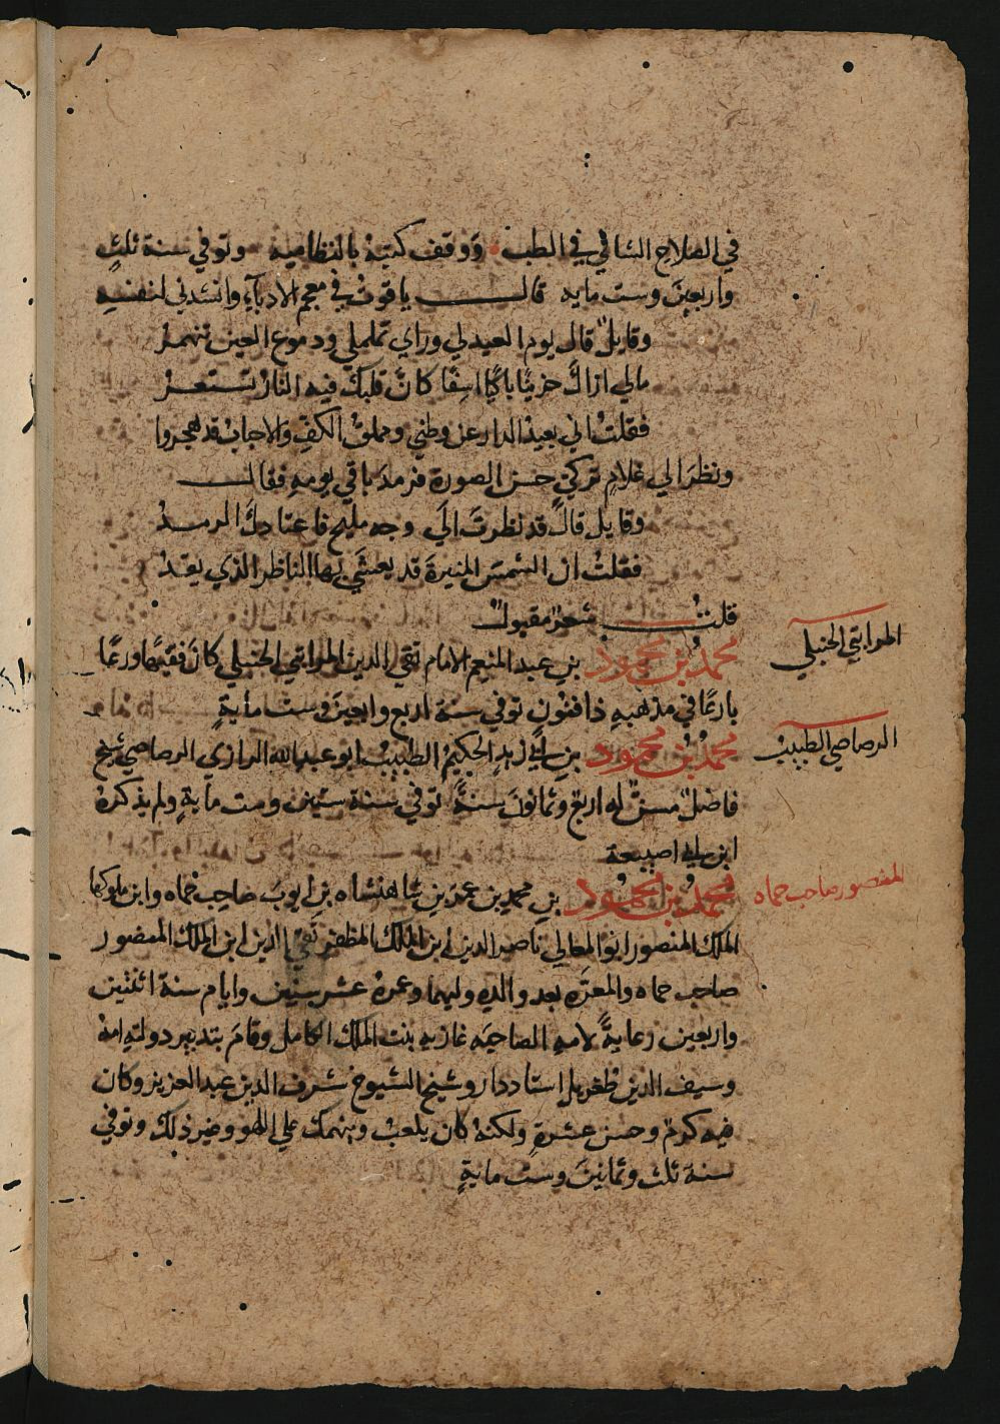 في الصلاح الشافي في الطب ووقف كتبه بالنظامية وتوفي سنة ثلث
واربعين وست ماية قال ياقوت في معجم الادباء وانشدني لنفسه
وقايل قال يوم العيد لي وراي تململي ودموع العين تنهمر
مالي اراك حزينا باكيا اسفا كان قلبك فيه النار تستعر
فقلت اني بعيد الدار عن وطني ومملق الكف والاحباب قد هجروا
ونظر الي غلام تركي حسن الصورة فرمد باقي يومه فقال
وقايل قال قد نظرت الي وجه مليح فاعتادك الرمد
فقلت ان الشمس المنيرة قد يعشي بها الناظر الذي يقد
قلت شعر مقبول
المراتبي الحنبلي
محمد بن محمود بن عبد المنعم الامام تقي الدين المراتبي الحنبلي كان فقيها ورعا
بارعا في مذهبه ذا فنون توفي سنة اربع واربعين وست ماية
الرصاصي الطبيب
محمد بن محمود بن ابي زيد الحكيم الطبيب ابو عبد الله الرازي الرصاصي شيخ
فاضل مسن له اربع وثمانون سنة توفي سنة ستين وست ماية ولم يذكره
ابن ابي اصيبعة
المنصور صاحب حماه
محمد بن محمود بن محمد بن عمر بن شاهنشاه بن ايوب صاحب حماه وابن ملوكها
الملك المنصور ابو المعالي ناصر الدين ابن الملك المظفر تقي الدين ابن الملك المنصور
صاحب حماه والمعرة بعد والده وليهما وعمره عشر سنين وايام سنة اثنتين
واربعين رعاية لامه الصاحبه غازيه بنت الملك الكامل وقام بتدبير دولته امه
وسيف الدين طغريل استاددار وشيخ الشيوخ شرف الدين عبد العزيز وكان
فيه كرم وحسن عشرة ولكنه كان يلعب وينهمك علي اللهو وغير ذلك وتوفي
سنة ثلث وثمانين وست ماية